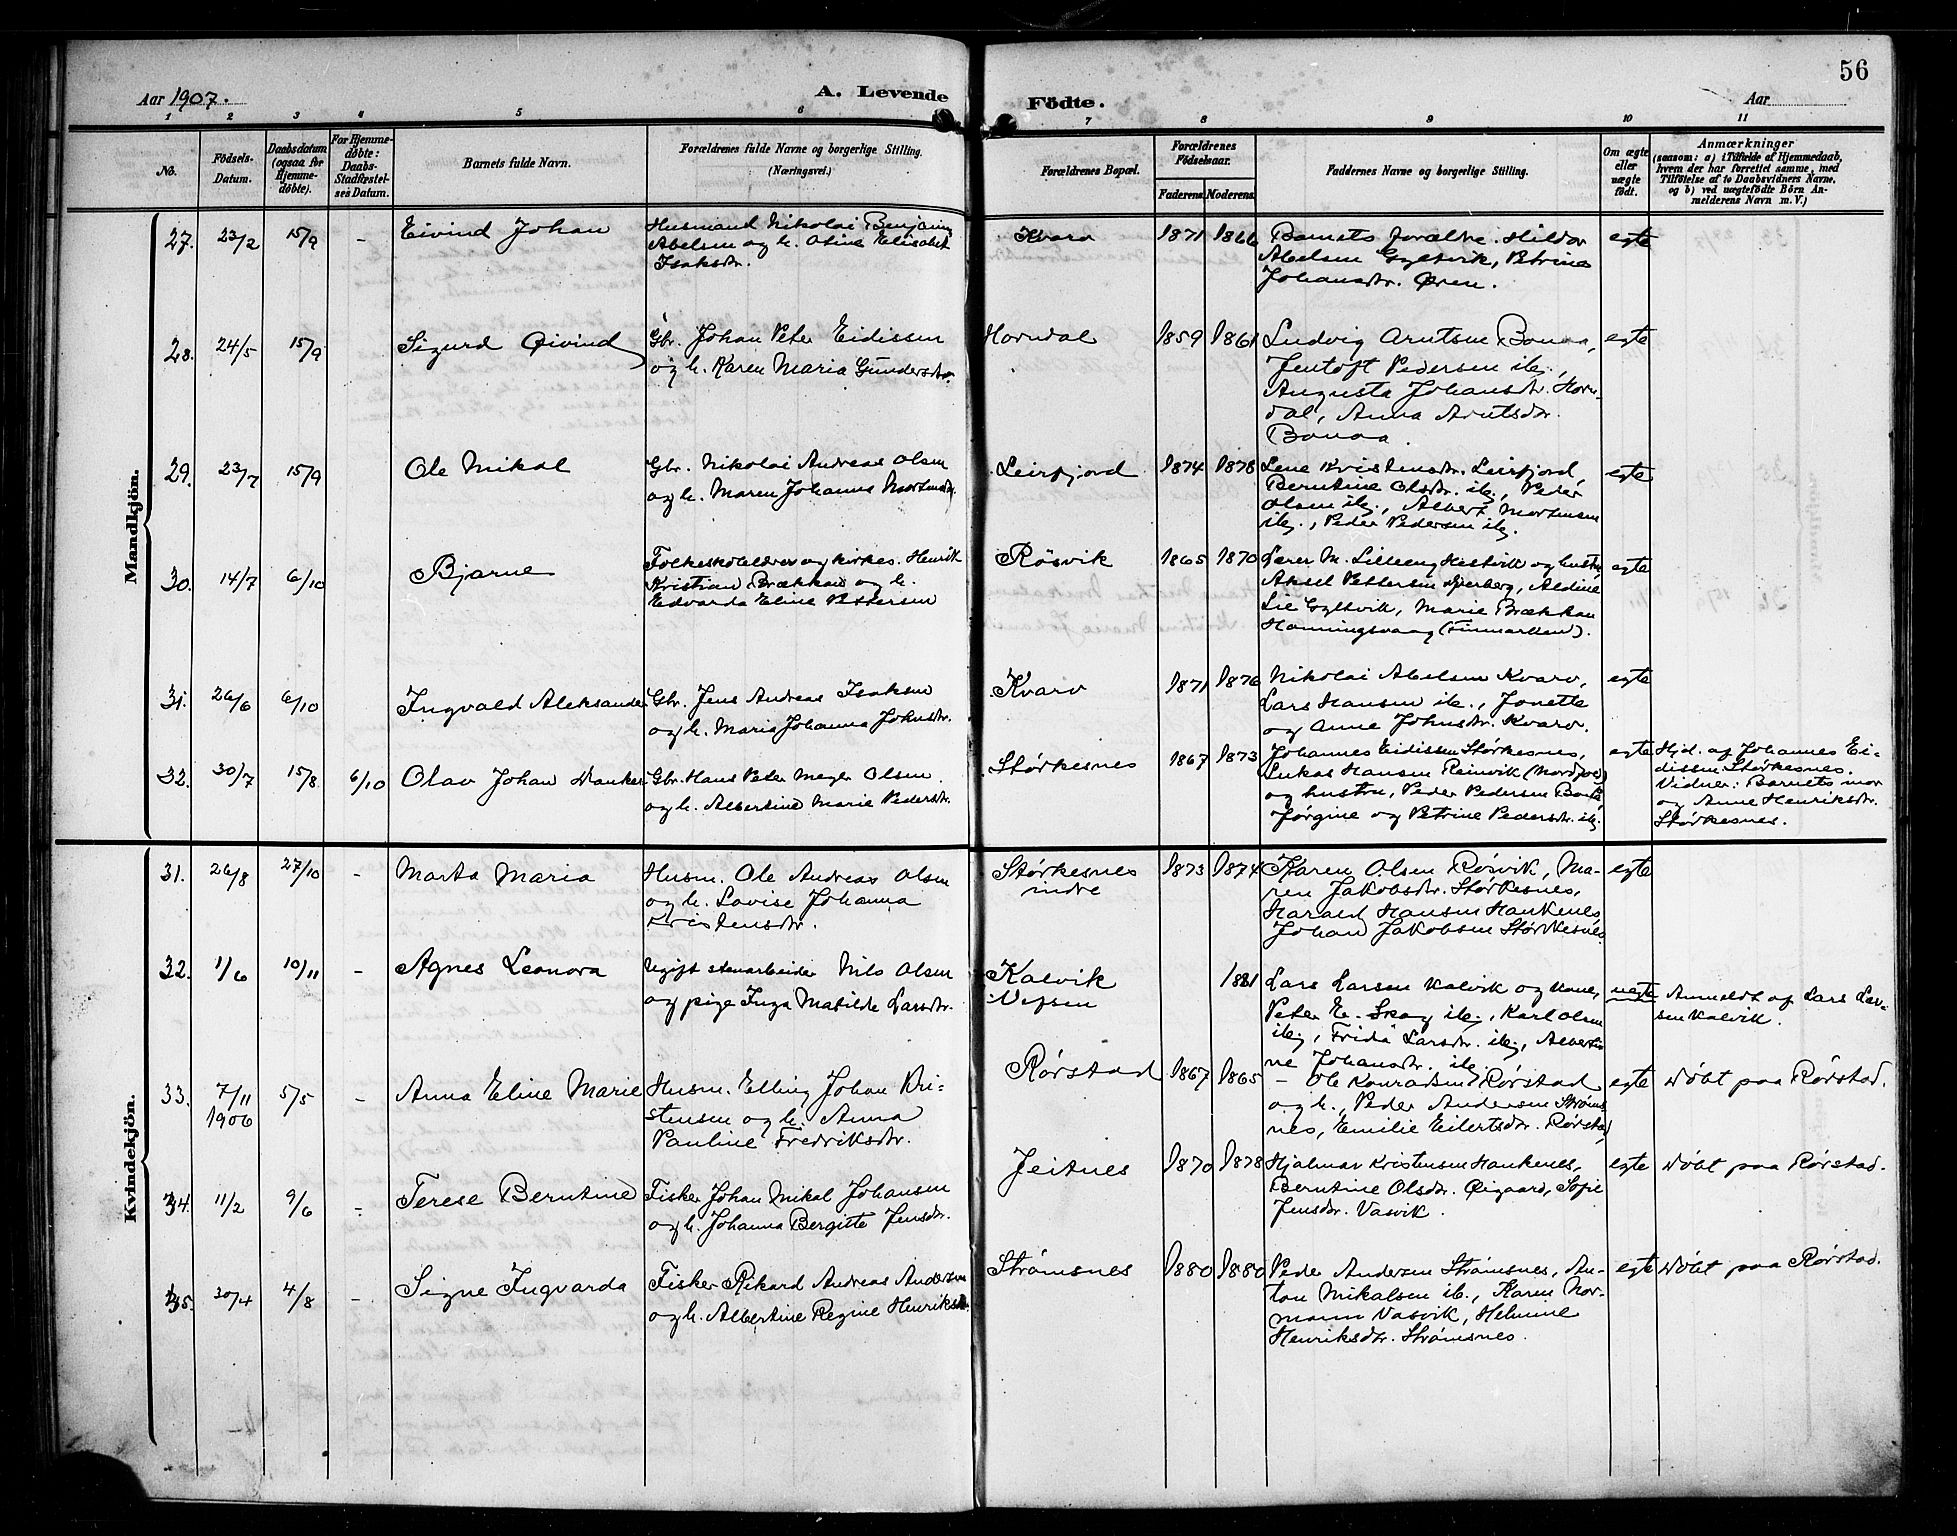 56
Aar 1907.
A. Levende
Födte.
Aar
1 2 3 4 5 6 7 8 9 10 11
No.
Födsels-
Datum.
Daabsdatum
(ogsaa for
Hjemme-
døbte).
For Hjemme-
døbte:
Daabs-
Stadfæstel-
ses Datum.
Barnets fulde Navn.
Forældrenes fulde Navne og borgerlige Stilling.
(Næringsvei.)
Forældrenes Bopæl.
Forældrenes
Fødselsaar.
Faderens.
Moderens.
Faddernes Navne og borgerlige Stilling.
Om ægte
eller
uægte
födt.
Anmærkninger
(saasom: a) i Tilfælde af Hjemmedaab,
hvem der har forrettet samme, med
Tilföielse af to Daabsvidners Navne,
og b) ved uægtefödte Börn An-
melderens Navn m. V.)
Mandkjön.
27. 23/2 15/9 – Eivind Johan
Husmand Nikolai Benjamin
Abelsen og h. Oline Elisabet
Isaksdtr.
Kvarv 1871 1866
Barnets forældre. Hildor
Abelsen Gyltvik, Petrine
Johansdtr. Øren.
egte
28. 24/5 15/9 Sigurd Øivind
Gbr. Johan Peter Eidissen
og h. Karen Maria Gundersdtr.
Horndal 1859 1861
Ludvig Arntsen Bonaa,
Jentoft Pedersen ib.,
Augusta Johansdtr. Horn-
dal, Anna Arntsdtr.
Bonaa.
egte
29. 23/7 15/9 Ole Mikal
Gbr. Nikolai Andreas Olsen
og h. Maren Johanna Mortensdtr.
Leirfjord 1874 1878
Lene Kristensdtr. Leirfjord,
Berntine Olsdtr. ib., Peder
Olsen ib., Albert Mortensen
ib., Peder Pedersen ib.
egte
30. 14/7 6/10 Bjarne
Folkeskolelærer og kirkes. Henrik
Kristian Brækkan og h.
Edvarda Eline Pettersen
Røsvik 1865 1870
Lærer M. Lilleeng Hestvik og hustru,
Aksel Pettersen Fjerberg, Aldine
Lie Gyltvik, Marie Brækkan
Honningsvaag (Finmarken).
egte
31. 26/6 6/10 Ingvald Aleksander
Gbr. Jens Andreas Isaksen
og h. Maria Johanna Johnsdtr.
Kvarv 1871 1876
Nikolai Abelsen Kvarv,
Lars Hansen ib., Jonette
og Anne Johnsdtr. Kvarv.
egte
32. 30/7 15/8 6/10 Olav Johan
Gbr. Hans Peter Meyer Olsen
og h. Albertine Marie Pedersdtr.
Størkesnes 1867 1873
Johannes Eidissen Størkesnes,
Lukas Hansen Reinvik
og hustru, Peder Pedersen
Jørgine og Petrine Pedersdtr. ib.
egte
Hjd. af Johannes Ei-
dissen Størkesnes.
Vidner: Barnets mor
og Anne Henriksdtr.
Størkesnes.
Kvindekjön.
31. 26/8 27/10 – Marta Maria
Husm. Ole Andreas Olsen
og h. Lovise Johanna
Kristensdtr.
Størkesnes
indre
1873 1874
Karen Olsen Røsvik, Ma-
ren Jakobsdtr. Størkesnes,
Harald Hansen Hankenes,
Johan Jakobsen Størkesnes.
egte
32. 1/6 10/11 – Agnes Leonora
Ugift stenarbeider Nils Olsen
og pige Inga Matilde Larsdtr.
Kalvik
Vefsen
1881
Lars Larsen Kalvik og kone,
Peter E. Skog ib., Karl Olsen
ib., Frida Larsdtr. ib., Alberti-
ne Johansdtr. ib.
uegte
Anmeldt af Lars Lar-
sen Kalvik.
33. 7/11
1906
5/5 – Anna Eline Marie
Husm. Elling Johan Kri-
stensen og h. Anna
Pauline Fredriksdtr.
Rørstad 1867 1865
– Ole Konradsen Rørstad
og h., Peder Andersen Strøms-
nes, Emilie Eilertsdtr. Rørstad
egte
Døbt paa Rørstad.
34. 11/2 9/6 – Terese Berntine
Fisker Johan Mikal Johansen
og h. Johanna Bergitte Jensdtr.
Jeitnes 1870 1878
Hjalmar Kristensen Hankenes,
Berntine Olsdtr. Øigaard, Sofie
Jensdtr. Vasvik.
egte
Døbt paa Rørstad.
35. 30/4 4/8 – Signe Ingvarda
Fisker Rikard Andreas Andersen
og h. Albertine Regine Henriksdtr.
Strømsnes 1880 1880
Peder Andersen Strømsnes, An-
ton Mikalsen ib., Karen Nor-
mann Vasvik, Helmine
Henriksdtr. Strømsnes.
egte
Døbt paa Rørstad.